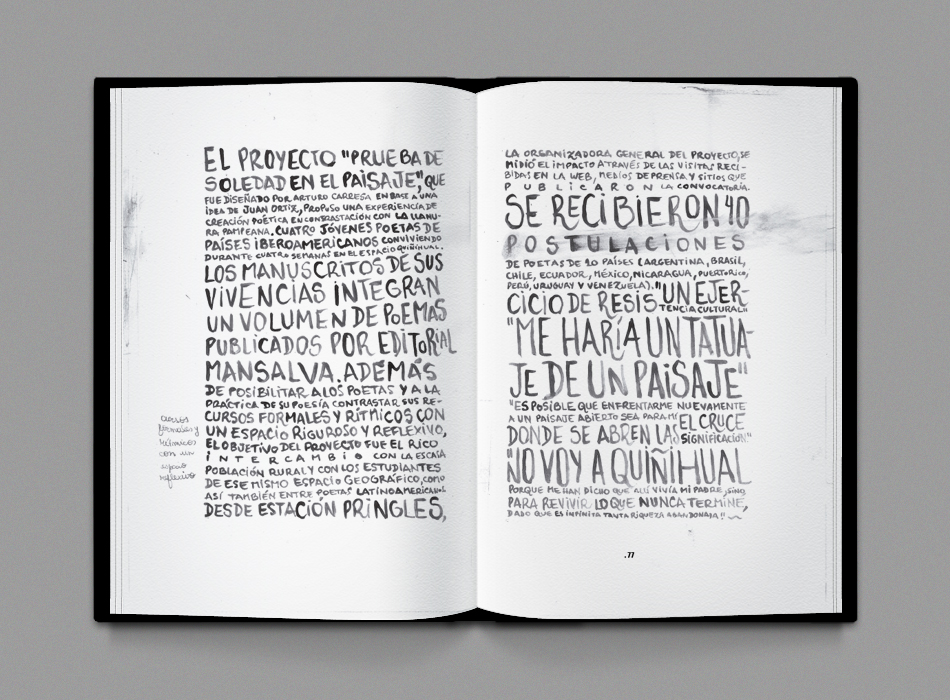 EL PROYECTO "PRUEBA DE
SOLEDAD EN EL PAISAJE", QUE
FUE DISEÑADO POR ARTURO CARRERA EN BASE A UNA
IDEA DE JUAN ORTIZ, PROPUSO UNA EXPERIENCIA DE
CREACIÓN POÉTICA EN CONTRASTACIÓN CON LA LLANU-
RA PAMPEANA. CUATRO JÓVENES POETAS DE
PAÍSES IBEROAMERICANOS CONVIVIENDO
DURANTE CUATRO SEMANAS EN EL ESPACIO QUIÑIHUAL.
LOS MANUSCRITOS DE SUS
VIVENCIAS INTEGRAN
UN VOLUMEN DE POEMAS
PUBLICADOS POR EDITORIAL
MANSALVA. ADEMÁS
DE POSIBILITAR A LOS POETAS Y A LA
PRÁCTICA DE SU POESÍA CONTRASTAR SUS RE-
CURSOS FORMALES Y RÍTMICOS CON
UN ESPACIO RIGUROSO Y REFLEXIVO,
EL OBJETIVO DEL PROYECTO FUE EL RICO
INTERCAMBIO CON LA ESCASA
POBLACIÓN RURAL Y CON LOS ESTUDIANTES
DE ESE MISMO ESPACIO GEOGRÁFICO, COMO
ASÍ TAMBIÉN ENTRE POETAS LATINOAMERICANOS
DESDE ESTACIÓN PRINGLES,
formales y
rítmicos
con un
espacio
reflexivo
LA ORGANIZADORA GENERAL DEL PROYECTO, SE
MIDIÓ EL IMPACTO A TRAVÉS DE LAS VISITAS RECI-
BIDAS EN LA WEB, MEDIOS DE PRENSA Y SITIOS QUE
PUBLICARON LA CONVOCATORIA.
SE RECIBIERON 40
POSTULACIONES
DE POETAS DE 10 PAÍSES (ARGENTINA, BRASIL,
CHILE, ECUADOR, MÉXICO, NICARAGUA, PUERTO RICO,
PERÚ, URUGUAY Y VENEZUELA). "UN EJER-
CICIO DE RESISTENCIA CULTURAL"
"ME HARÍA UN TATUA-
JE DE UN PAISAJE"
"ES POSIBLE QUE ENFRENTARME NUEVAMENTE
A UN PAISAJE ABIERTO SEA PARA MÍ EL CRUCE
DONDE SE ABREN LAS SIGNIFICACIÓN"
"NO VOY A QUIÑIHUAL
PORQUE ME HAN DICHO QUE ALLÍ VIVÍA MI PADRE, SINO
PARA REVIVIR LO QUE NUNCA TERMINE,
DADO QUE ES INFINITA TANTA RIQUEZA ABANDONADA"
.77